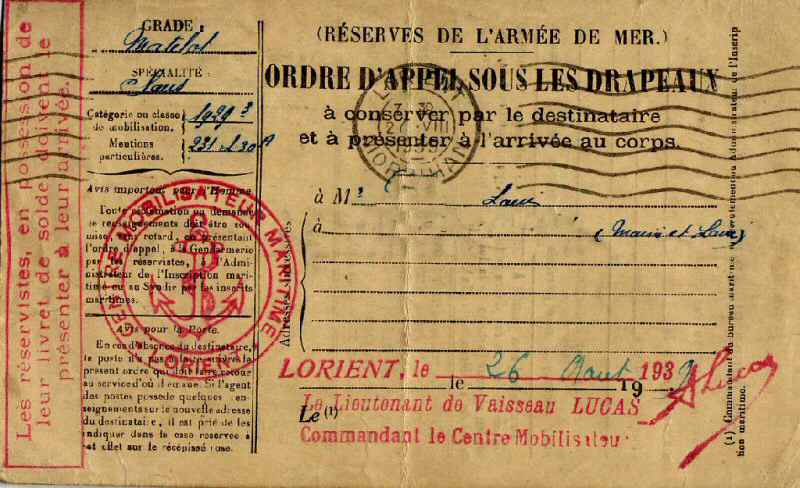 Les réservistes, en possession de
leur livret de solde doivent le
présenter à leur arrivée.
GRADE :
Matelot
SPÉCIALITÉ :
Sans
Catégorie ou classe
de mobilisation.
1929
Mentions
particulières.
231
Avis important pour l'Homme
Toute réclamation ou demande
de renseignements doit être sou-
mise, sans retard, en présentant
l'ordre d'appel, à la Gendarmerie
par les réservistes, à l'Admi-
nistrateur de l'Inscription mari-
time ou au Syndic par les inscrits
maritimes.
CENTRE MOBILISATEUR MARITIME
Avis pour la Poste.
En cas d'absence du destinataire,
la poste n'a pas à faire suivre le
présent ordre qui doit faire retour
au service d'où il émane. Si l'agent
des postes possède quelques ren-
seignements sur la nouvelle adresse
du destinataire, il est prié de les
indiquer dans la case réservée à
cet effet sur le récépissé rose.
(RÉSERVES DE L'ARMÉE DE MER.)
ORDRE D'APPEL SOUS LES DRAPEAUX
à conserver par le destinataire
et à présenter à l'arrivée au corps.
LORIENT
MORBIHAN
à M
Louis
à
(Maine et Loire)
Adresses successives
LORIENT, le 26 Août 1939
le 19
Le Lieutenant de Vaisseau LUCAS
Le (1)
Commandant le Centre Mobilisateur
Lucas
(1) Commandant du bureau maritime de recrutement ou Administrateur de l'Inscrip
tion maritime.